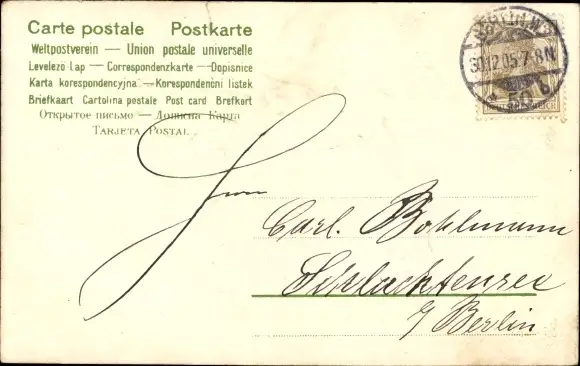 Carte postale Postkarte
Weltpostverein — Union postale universelle
Levelező-Lap — Correspondenzkarte — Dopisnice
Karta korespondencyjna — Korespondenční listek
Briefkaart Cartolina postale Post card Brefkort
Открытое письмо — Дописна Карта
TARJETA POSTAL
BERLIN S
30.12.05.7-8N
* 59 c
DEUTSCHES REICH
Herrn
Carl Bohlmann
Schlachtensee
b/ Berlin